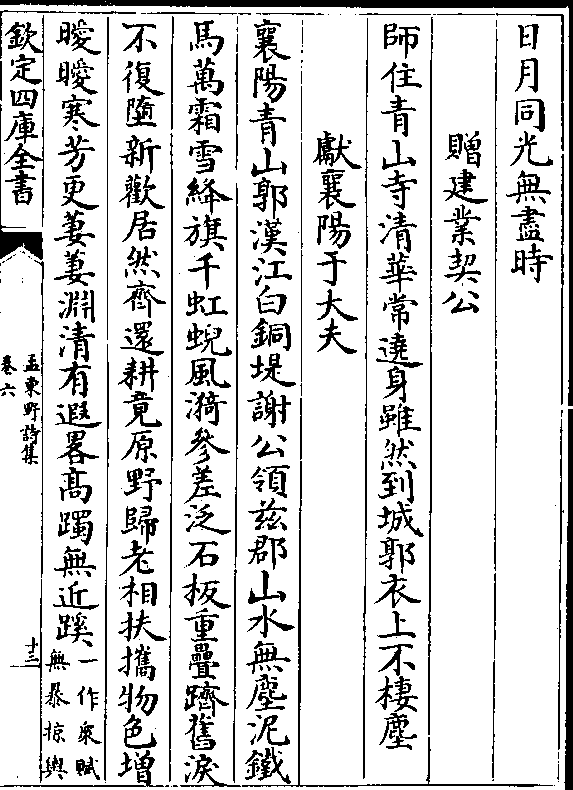 日月同光無盡時
贈建業契公
師住青山寺清華常遶身雖然到城郭衣上不棲塵
獻襄陽于大夫
襄陽青山郭漢江白銅堤謝公領兹郡山水無塵泥鐵
馬萬霜雪絳旗千虹蜺風漪參差泛石板重疊躋舊淚
不復墮新歡居然齊還耕竟原野歸老相扶攜物色增
曖曖寒芳更萋萋淵清有遐畧高躅無近蹊一作衆賦
無暴掠輿
欽定四庫全書
孟東野詩集
卷六
十三